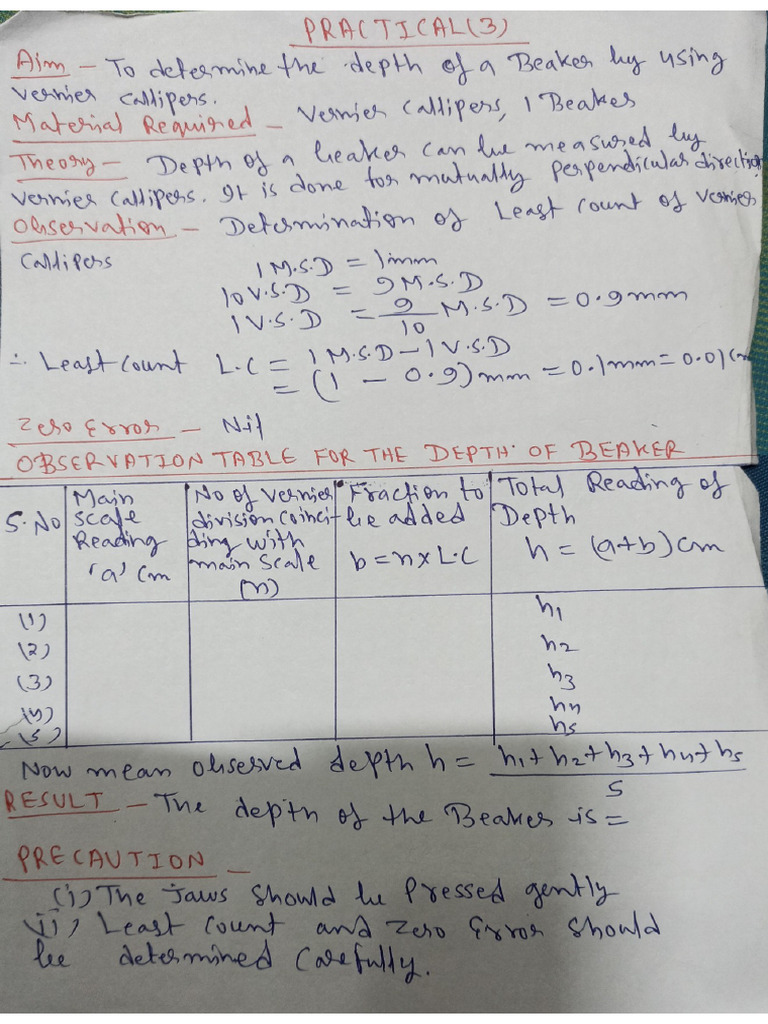 PRACTICAL(3)
Aim - To determine the depth of a Beaker by using
vernier callipers.
Material Required - Vernier Callipers, 1 Beaker
Theory - Depth of a beaker can be measured by
vernier callipers. It is done for mutually perpendicular direction
Observation - Determination of Least count of vernier
Callipers
1 M.S.D = 1mm
10 V.S.D = 9 M.S.D
1 V.S.D = 9/10 M.S.D = 0.9mm
∴ Least Count L.C = 1 M.S.D - 1 V.S.D
= (1 - 0.9) mm = 0.1mm = 0.01 Cm
Zero Error - Nil
OBSERVATION TABLE FOR THE DEPTH OF BEAKER
S.No | Main Scale Reading 'a' Cm | No of vernier division Coinciding with main Scale (n) | Fraction to be added b = n x L.C | Total Reading of Depth h = (a+b) cm
(1) h1
(2) h2
(3) h3
(4) h4
(5) h5
Now mean observed depth h = h1 + h2 + h3 + h4 + h5 / 5
RESULT - The depth of the Beaker is =
PRECAUTION -
(i) The Jaws Should be Pressed gently
(ii) Least Count and Zero Error Should
be determined Carefully.